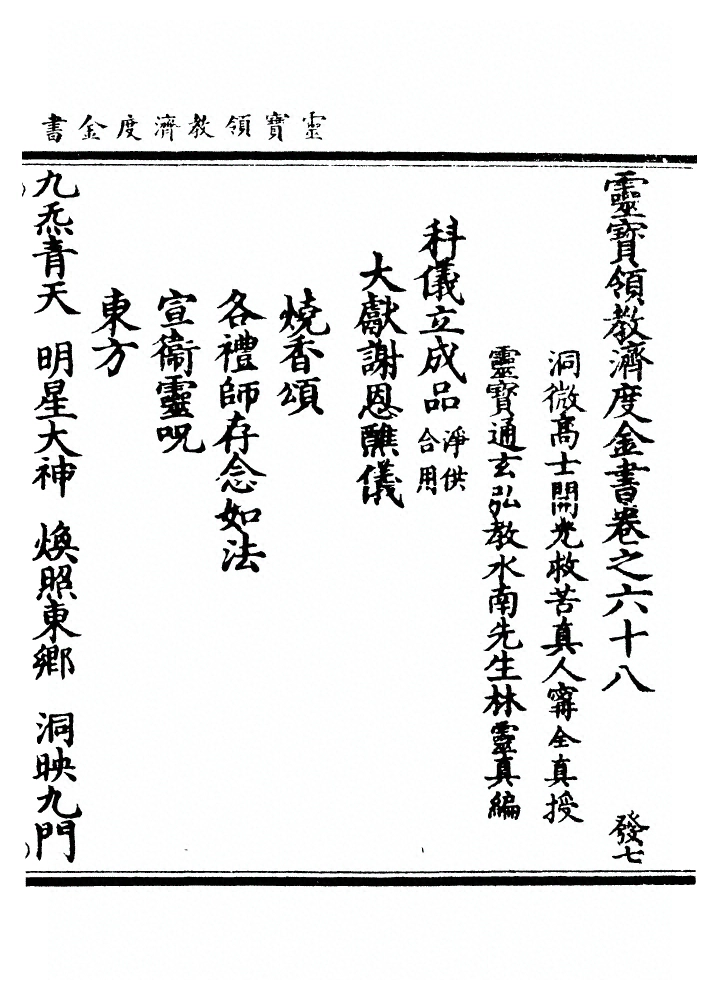 靈寶領教濟度金書
靈寶領教濟度金書卷之六十八 發七
洞微高士開光救苦真人甯全真授
靈寶通玄弘教水南先生林靈真編
科儀立成品 淨供合用
大獻謝恩醮儀
燒香頌
各禮師存念如法
宣衞靈呪
東方
九炁青天 明星大神 煥照東鄉 洞映九門